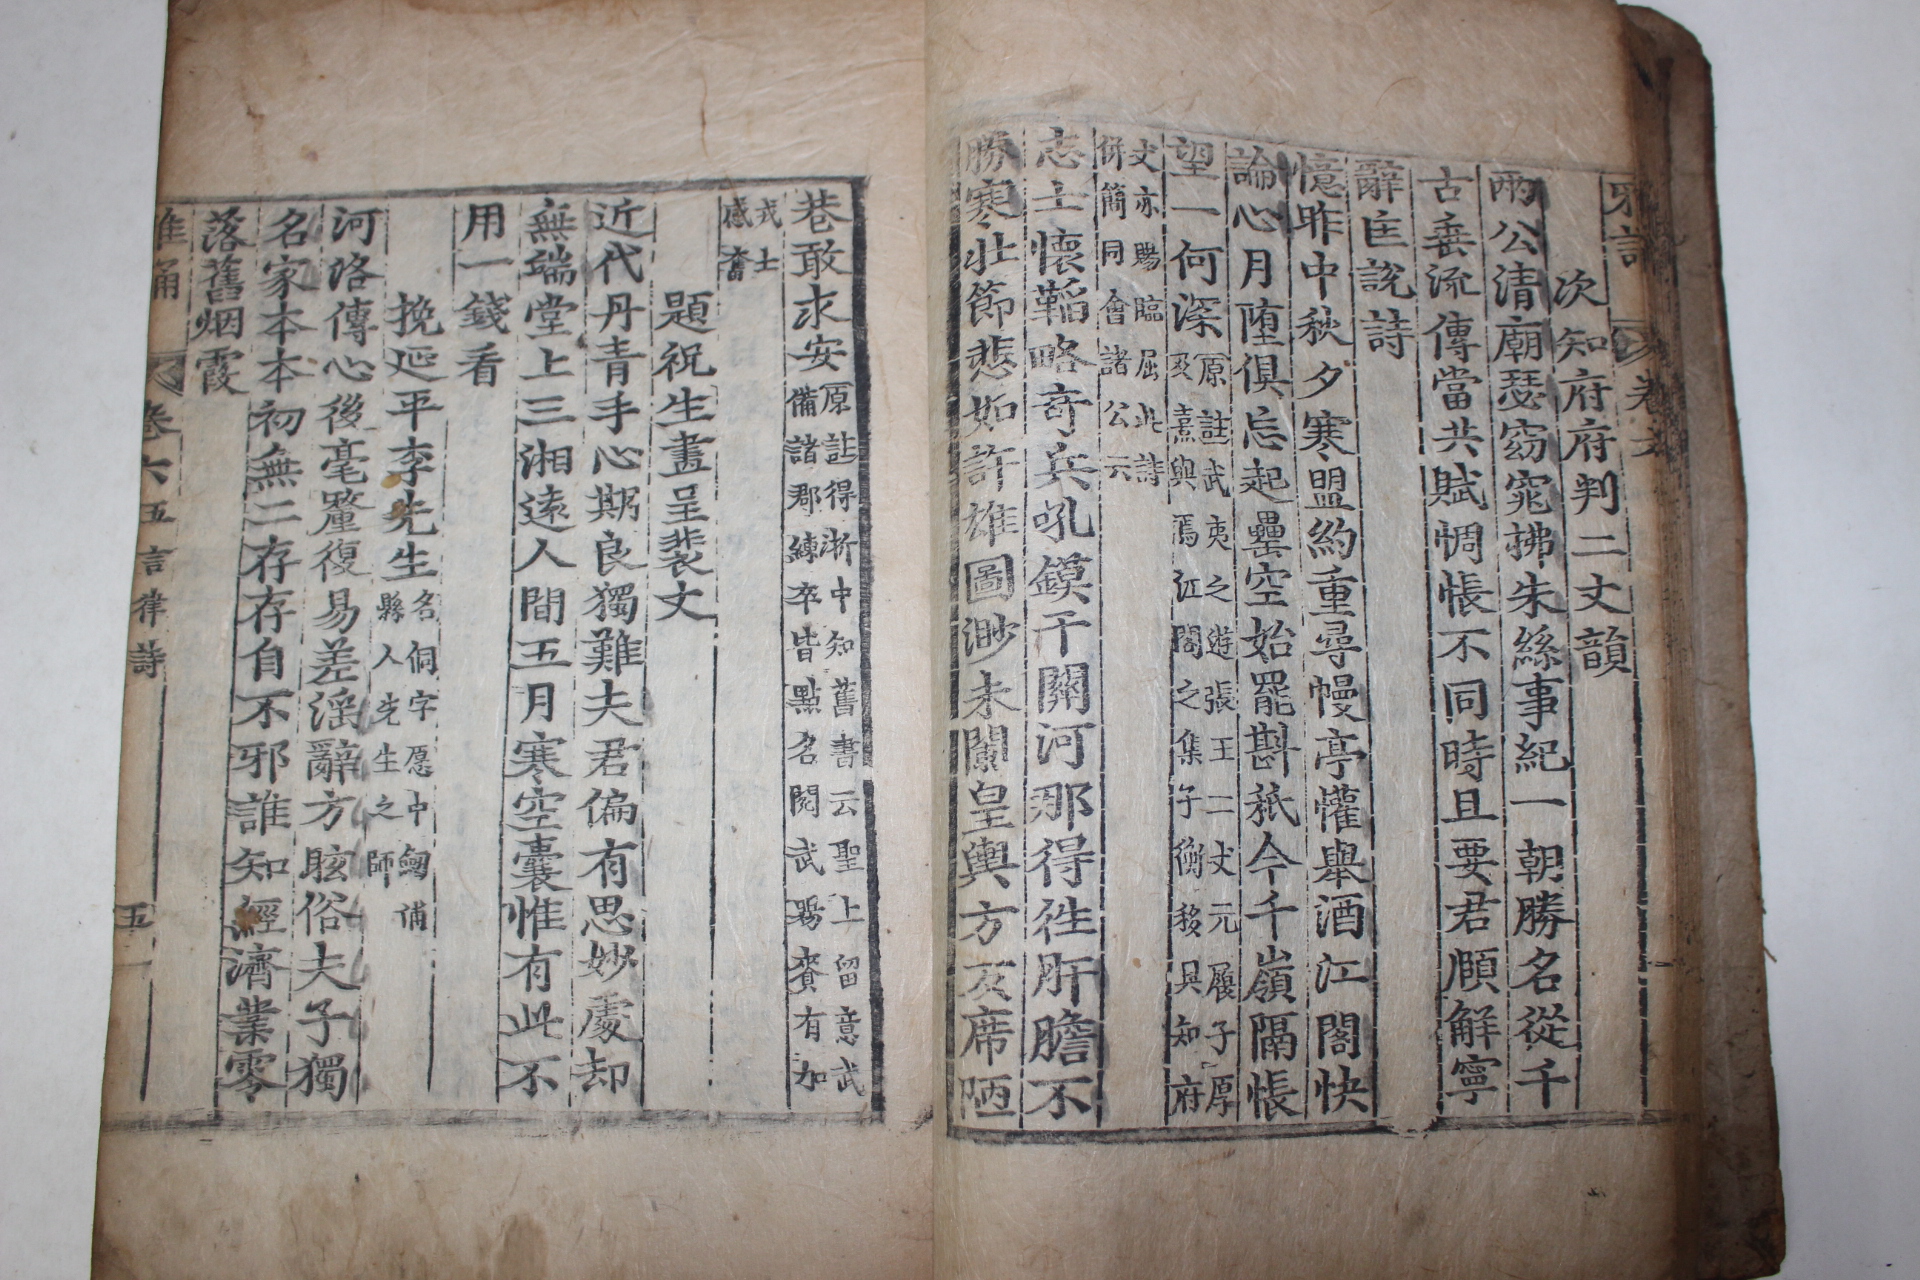 次知府府判二丈韻
兩公清廟瑟窈窕拂朱絲事紀一朝勝名從千
古垂流傳當共賦惆悵不同時且要君頋解寧
辭匡說詩
憶昨中秋夕寒盟約重尋幔亭懽舉酒江閣快
論心月堕俱忘起罍空始罷斟秖今千嶺隔悵
望一何深原註武夷之遊張王二丈元履子厚及熹與焉江閣之集子衡移具知府
丈亦賜臨屈此詩併簡同會諸公云
志士懷韜略奇兵吼鏌干關河那得徃肝膽不
勝寒壮節悲如許雄圖渺未闌皇輿方反席陋
巷敢求安原註得浙中知舊書云聖上留意武備諸郡練卒皆點名閱武賜賚有加
戎士感奮
題祝生畫呈裴丈
近代丹青手心期良獨難夫君偏有思妙處却
無端堂上三湘遠人間五月寒空囊惟有此不
用一錢看
挽延平李先生名侗字愿中劒浦縣人先生之師
河洛傳心後毫釐復易差滛辭方眩俗夫子獨
名家本本初無二存存自不邪誰知經濟業零
落舊烟霞
雅誦 卷六五言律詩 五